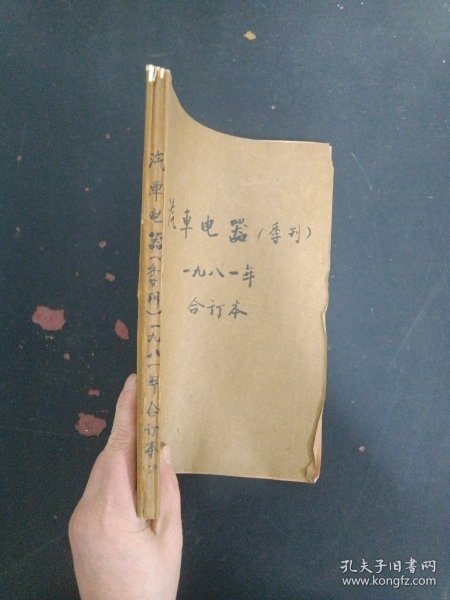 汽車电器(季刊)一九八一年合订本
汽車电器(季刊)
一九八一年
合订本
孔夫子旧书网
www.kongfz.com